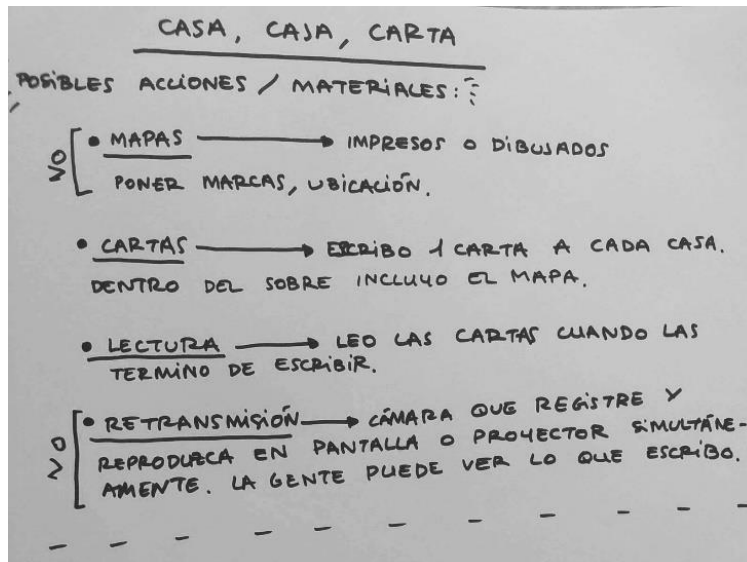 CASA, CAJA, CARTA
POSIBLES ACCIONES / MATERIALES:
• MAPAS → IMPRESOS O DIBUJADOS
PONER MARCAS, UBICACIÓN.
• CARTAS → ESCRIBO 1 CARTA A CADA CASA.
DENTRO DEL SOBRE INCLUYO EL MAPA.
• LECTURA → LEO LAS CARTAS CUANDO LAS
TERMINO DE ESCRIBIR.
• RETRANSMISIÓN → CÁMARA QUE REGISTRE Y
REPRODUZCA EN PANTALLA O PROYECTOR SIMULTÁNE-
AMENTE. LA GENTE PUEDE VER LO QUE ESCRIBO.